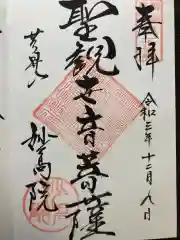 奉拝
令和三年十二月八日
聖観世音菩薩
妙高院